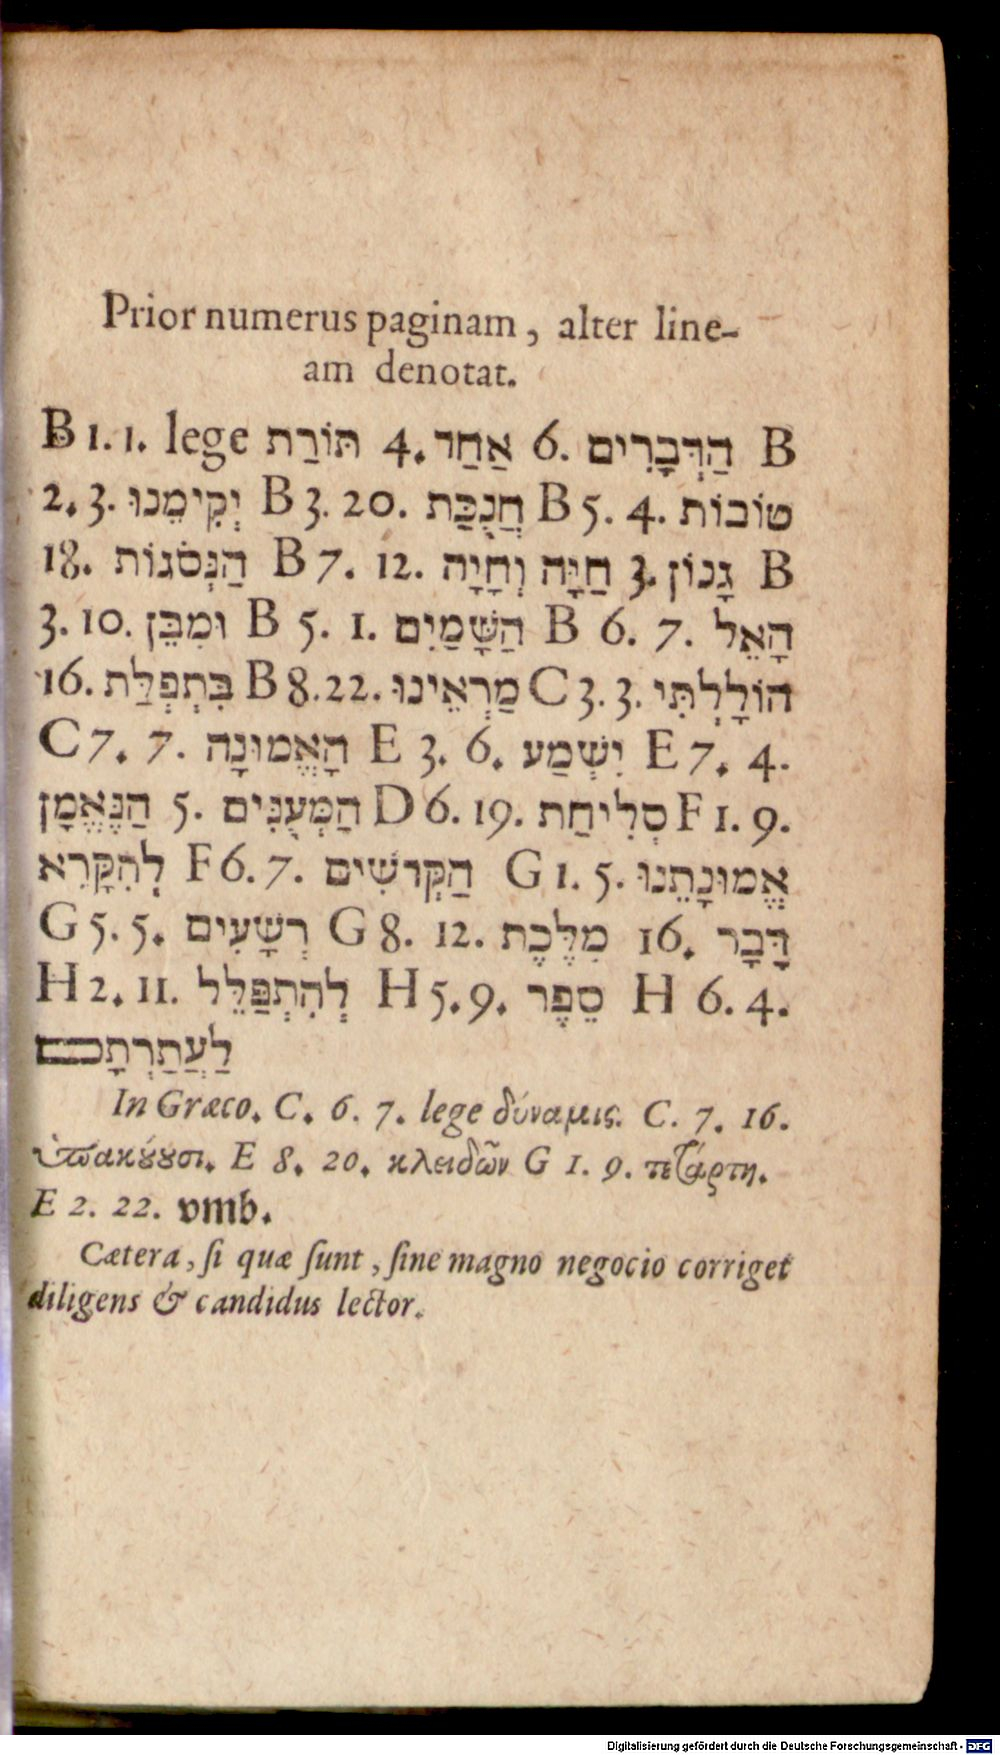 Prior numerus paginam, alter line-
am denotat.
B 1. 1. lege תּוֹרַת 4. אַחַד 6. הַדְּבָרִים B
2. 3. יְקִימֵנוּ B 3. 20. חֲנֻכַּת B 5. 4. טוֹבוֹת
18. הַנְּסֹגוֹת B 7. 12. חַיָּה וְחָיָה 3. גָנוֹן B
3. 10. וּמִבֵּן B 5. 1. הַשָּׁמַיִם B 6. 7. הָאֵל
16. בִּתְפְלַּת B 8. 22. מַרְאֵינוּ C 3. 3. הוֹלָלְתִּי
C 7. 7. הָאֱמוּנָה E 3. 6. יִשְׁמַע E 7. 4.
הַנֶּאֱמָן 5. הַמְּעֻנִּים D 6. 19. סְלִיחַת F 1. 9.
לְהִקָּרִא F 6. 7. הַקְּדשִׁים G 1. 5. אֱמוּנָתֵנוּ
G 5. 5. רְשָׁעִים G 8. 12. מִלֶּכֶת 16. דָּבָר
H 2. 11. לְהִתְפַּלֵּל H 5. 9. סֵפֶר H 6. 4.
לַעֲתַרְתָכם
In Græco. C. 6. 7. lege δύναμις. C. 7. 16.
ὑπακούουσι. E 8. 20. κλειδῶν G 1. 9. τετάρτη.
E 2. 22. vmb.
Cætera, ſi quæ ſunt, ſine magno negocio corriget
diligens & candidus lector.
Digitalisierung gefördert durch die Deutsche Forschungsgemeinschaft - DFG